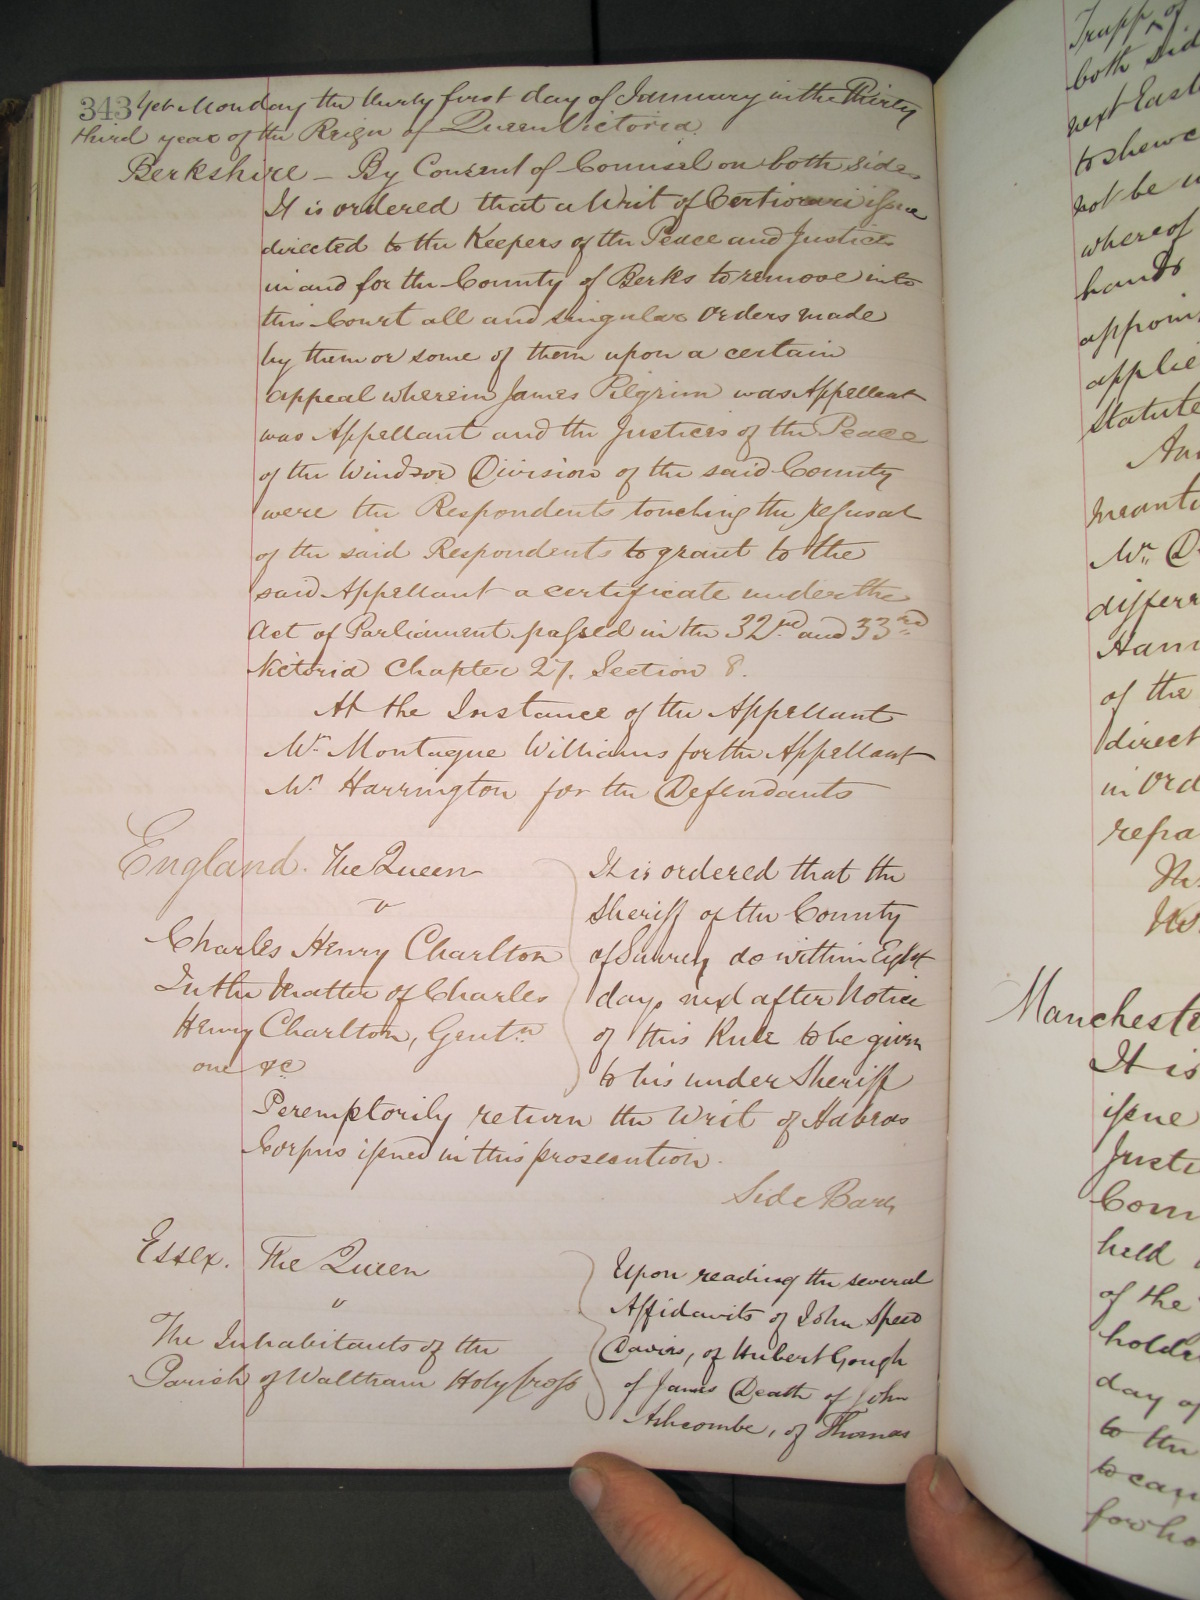 343 Yet Monday the thirty first day of January in the Thirty
third year of the Reign of Queen Victoria.
Berkshire – By Consent of Counsel on both sides
It is ordered that a Writ of Certiorari issue
directed to the Keepers of the Peace and Justices
in and for the County of Berks to remove into
this Court all and singular Orders made
by them or some of them upon a certain
appeal wherein James Pilgrim was Appellant
was Appellant and the Justices of the Peace
of the Windsor Division of the said County
were the Respondents touching the refusal
of the said Respondents to grant to the
said Appellant a certificate under the
Act of Parliament passed in the 32nd and 33rd
Victoria Chapter 27. Section 8.
At the Instance of the Appellant
Mr. Montague Williams for the Appellant
Mr. Harrington for the Defendants
England. The Queen
v
Charles Henry Charlton
In the Matter of Charles
Henry Charlton, Gentn
one &c
It is ordered that the
Sheriff of the County
of Surrey do within Eight
days next after Notice
of this Rule to be given
to his under Sheriff
Peremptorily return the Writ of Habeas
Corpus issued in this prosecution.
Side Bar
Essex. The Queen
v
The Inhabitants of the
Parish of Waltham Holy Cross
Upon reading the several
Affidavits of John Speed
Davies, of Hubert Gough
of James Death of John
Ashcombe, of Thomas
both sid
next East
to shew c
not be
whereof
hands
appoin
applie
Statute
meanti
Mr. D
differ
of the
direct
in ord
repa
Manchest
It is
issue
Justi
Coun
held
of the
holde
day of
to the
to cau
for ho